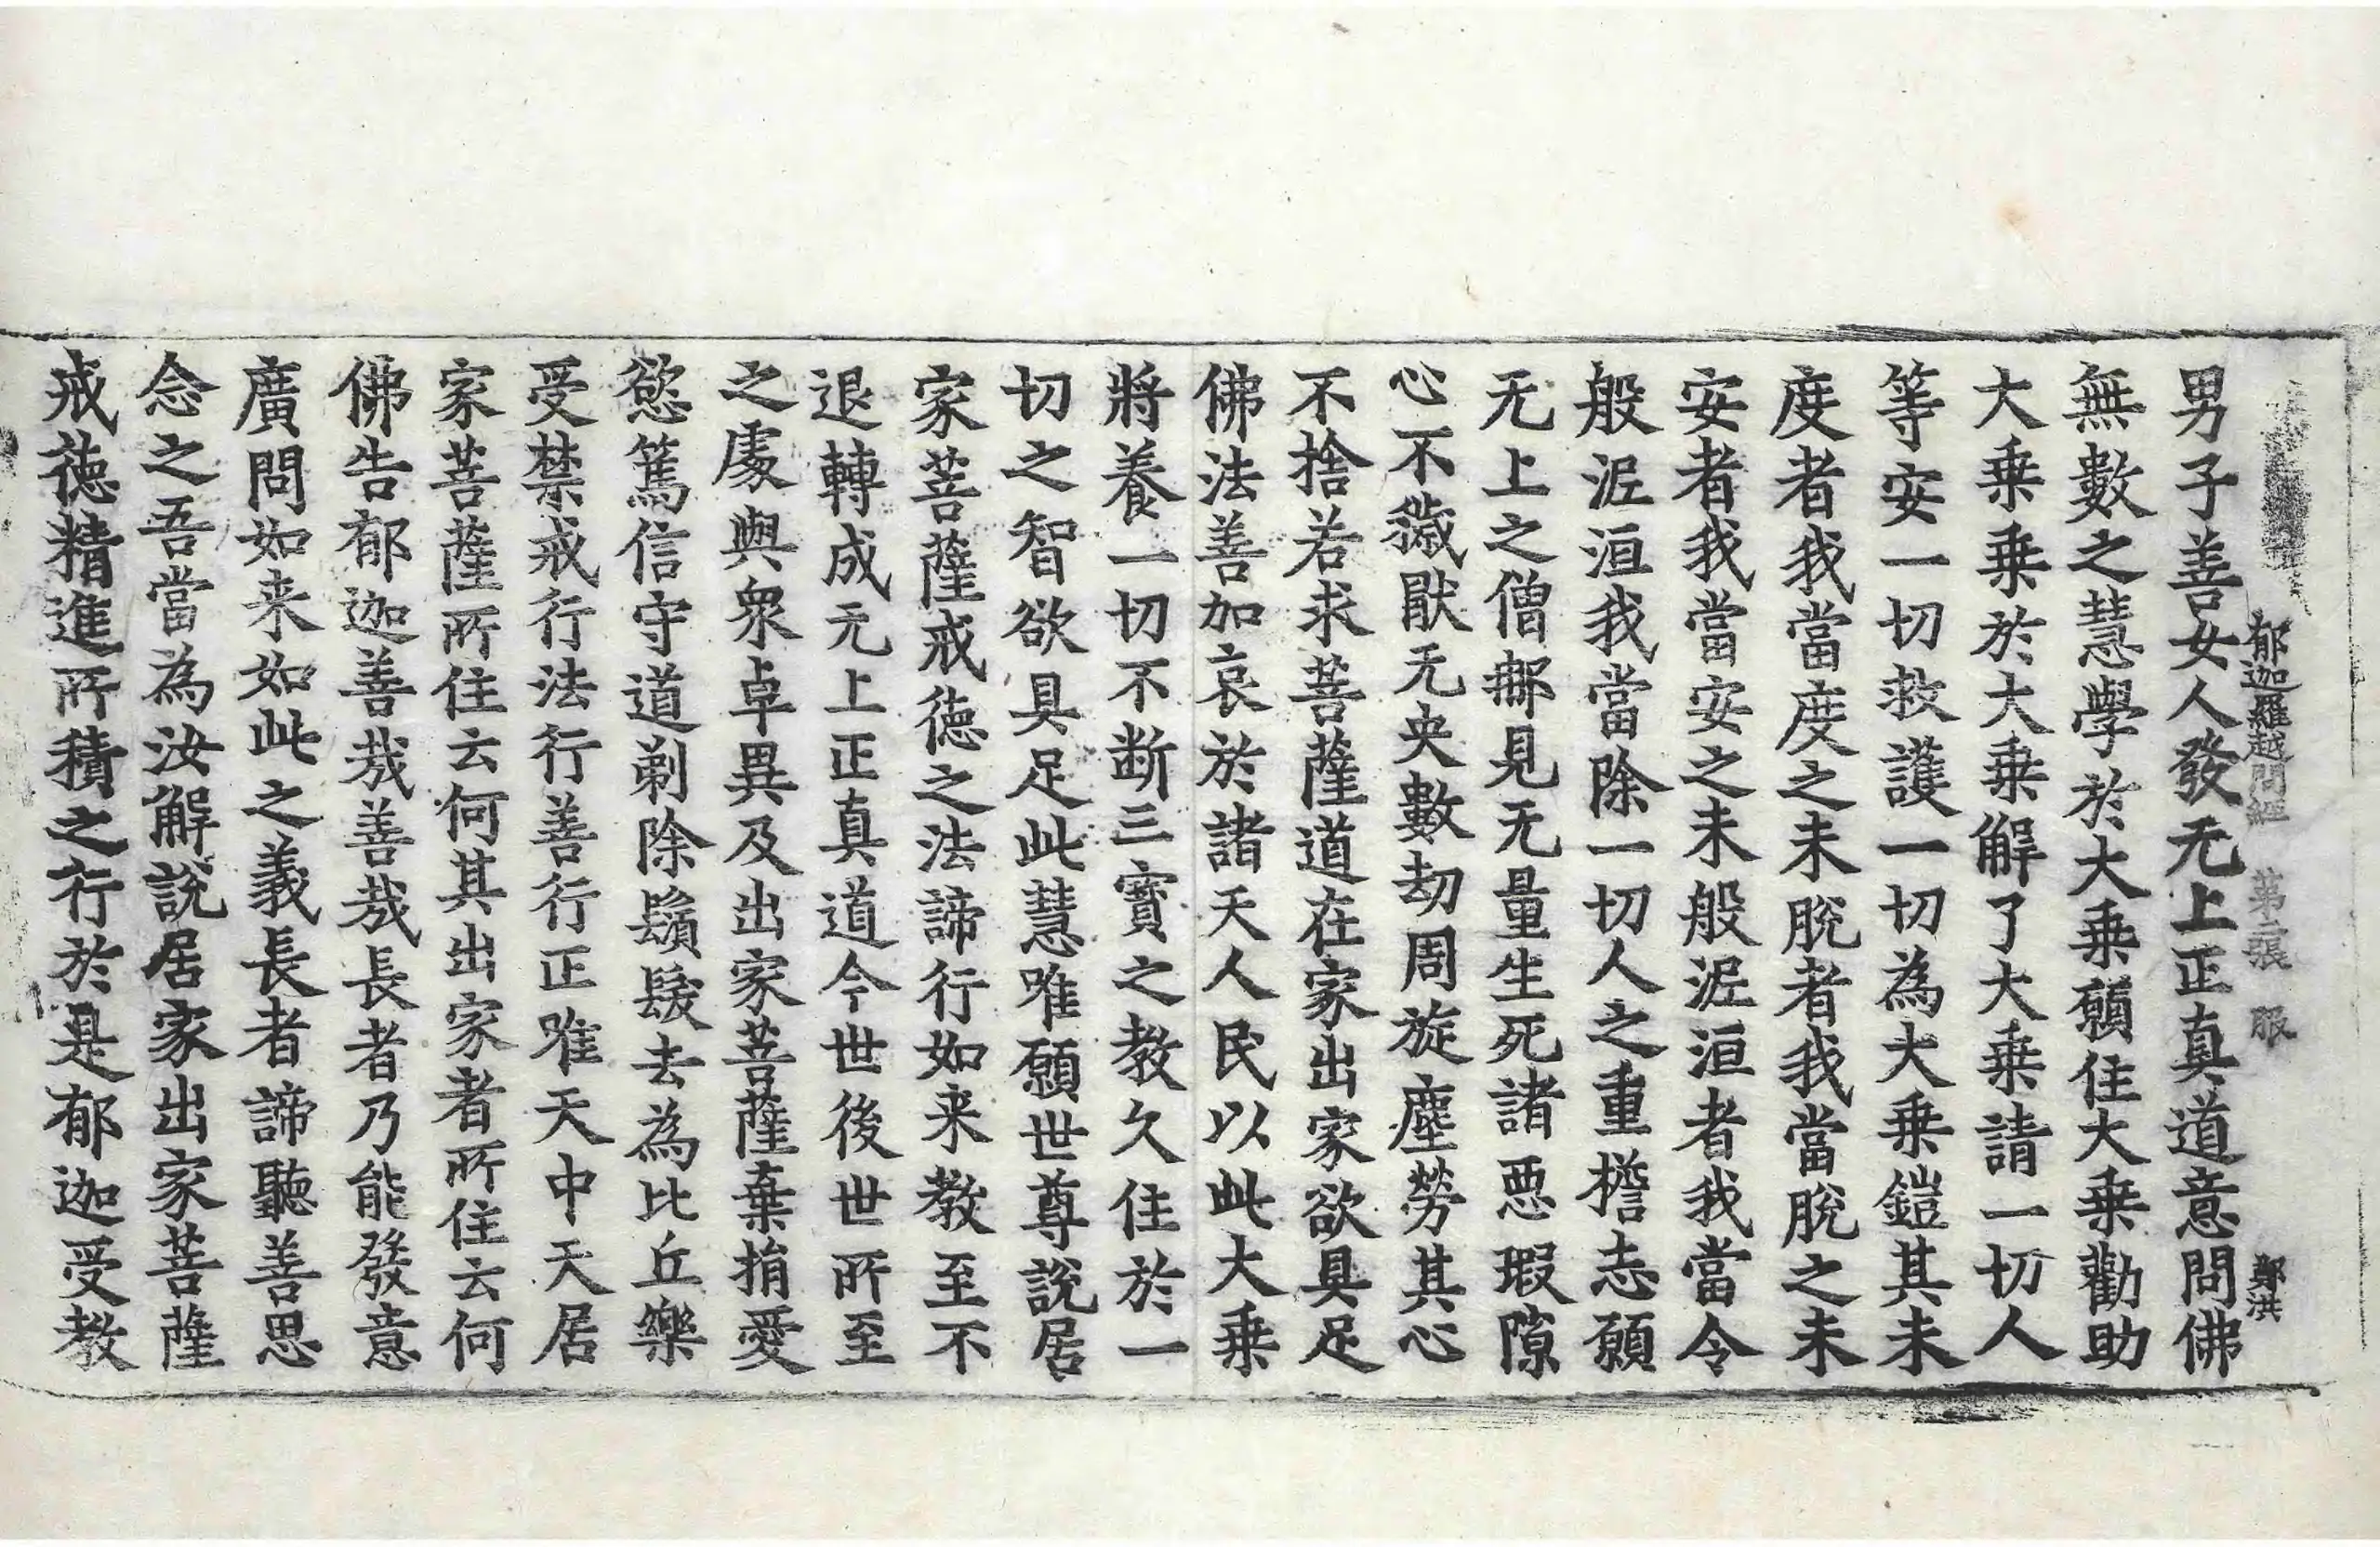 郁迦羅越問經 第二張 服 鄭洪
男子善女人發无上正真道意問佛
無數之慧學於大乗願住大乗勸助
大乗乗於大乗解了大乗請一切人
等安一切救護一切為大乗鎧其未
度者我當度之未脫者我當脫之未
安者我當安之未般泥洹者我當令
般泥洹我當除一切人之重檐志願
无上之僧那見无量生死諸惡瑕隙
心不穢猒无央數劫周旋塵勞其心
不捨若求菩薩道在家出家欲具足
佛法善加哀於諸天人民以此大乗
將養一切不断三寳之教久住於一
切之智欲具足此慧唯願世尊說居
家菩薩戒德之法諦行如来教至不
退轉成无上正真道今世後世所至
之處與衆卓異及出家菩薩棄捐愛
慾篤信守道剃除鬚髮去為比丘樂
受禁戒行法行善行正唯天中天居
家菩薩所住云何其出家者所住云何
佛告郁迦善哉善哉長者乃能發意
廣問如来如此之義長者諦聽善思
念之吾當為汝解說居家出家菩薩
戒德精進所積之行於是郁迦受教